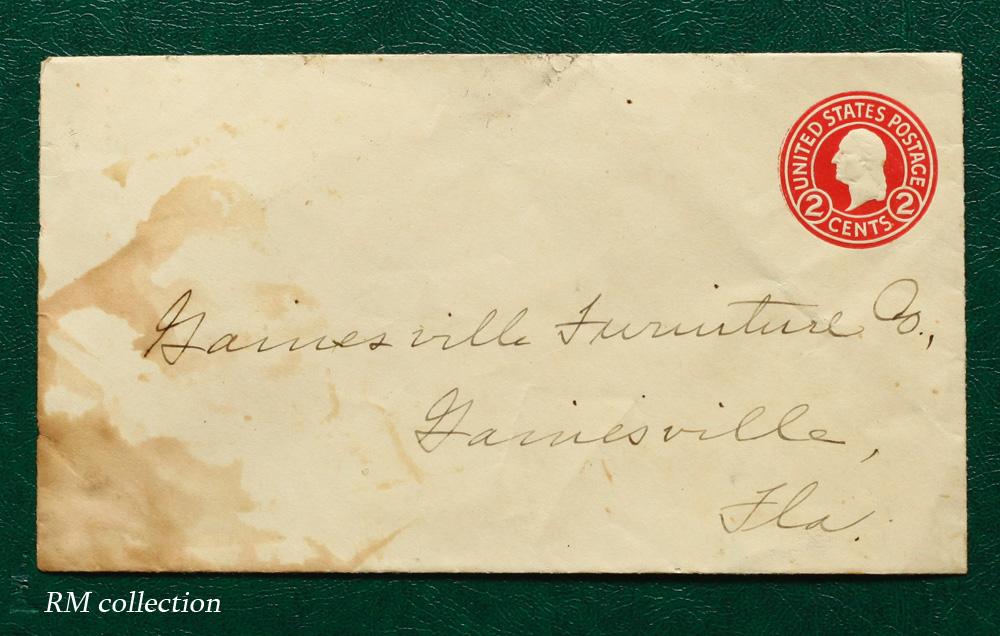 UNITED STATES POSTAGE
2 2
CENTS
Gainesville Furniture Co.,
Gainesville,
Fla.
RM collection